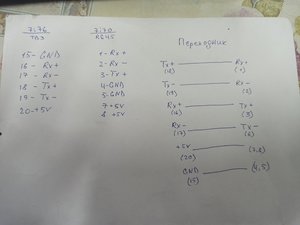 7i76
TB3
15 - GND
16 - Rx+
17 - Rx-
18 - Tx+
19 - Tx-
20 - +5v
7i70
RJ45
1 - Rx+
2 - Rx-
3 - Tx+
4 - GND
5 - GND
7 +5v
8 +5v
Переходник
Tx+ Rx+
(18) (1)
Tx- Rx-
(19) (2)
Rx+ Tx+
(16) (3)
Rx- Tx-
(17) (6)
+5v (7,8)
(20)
GND (4,5)
(15)